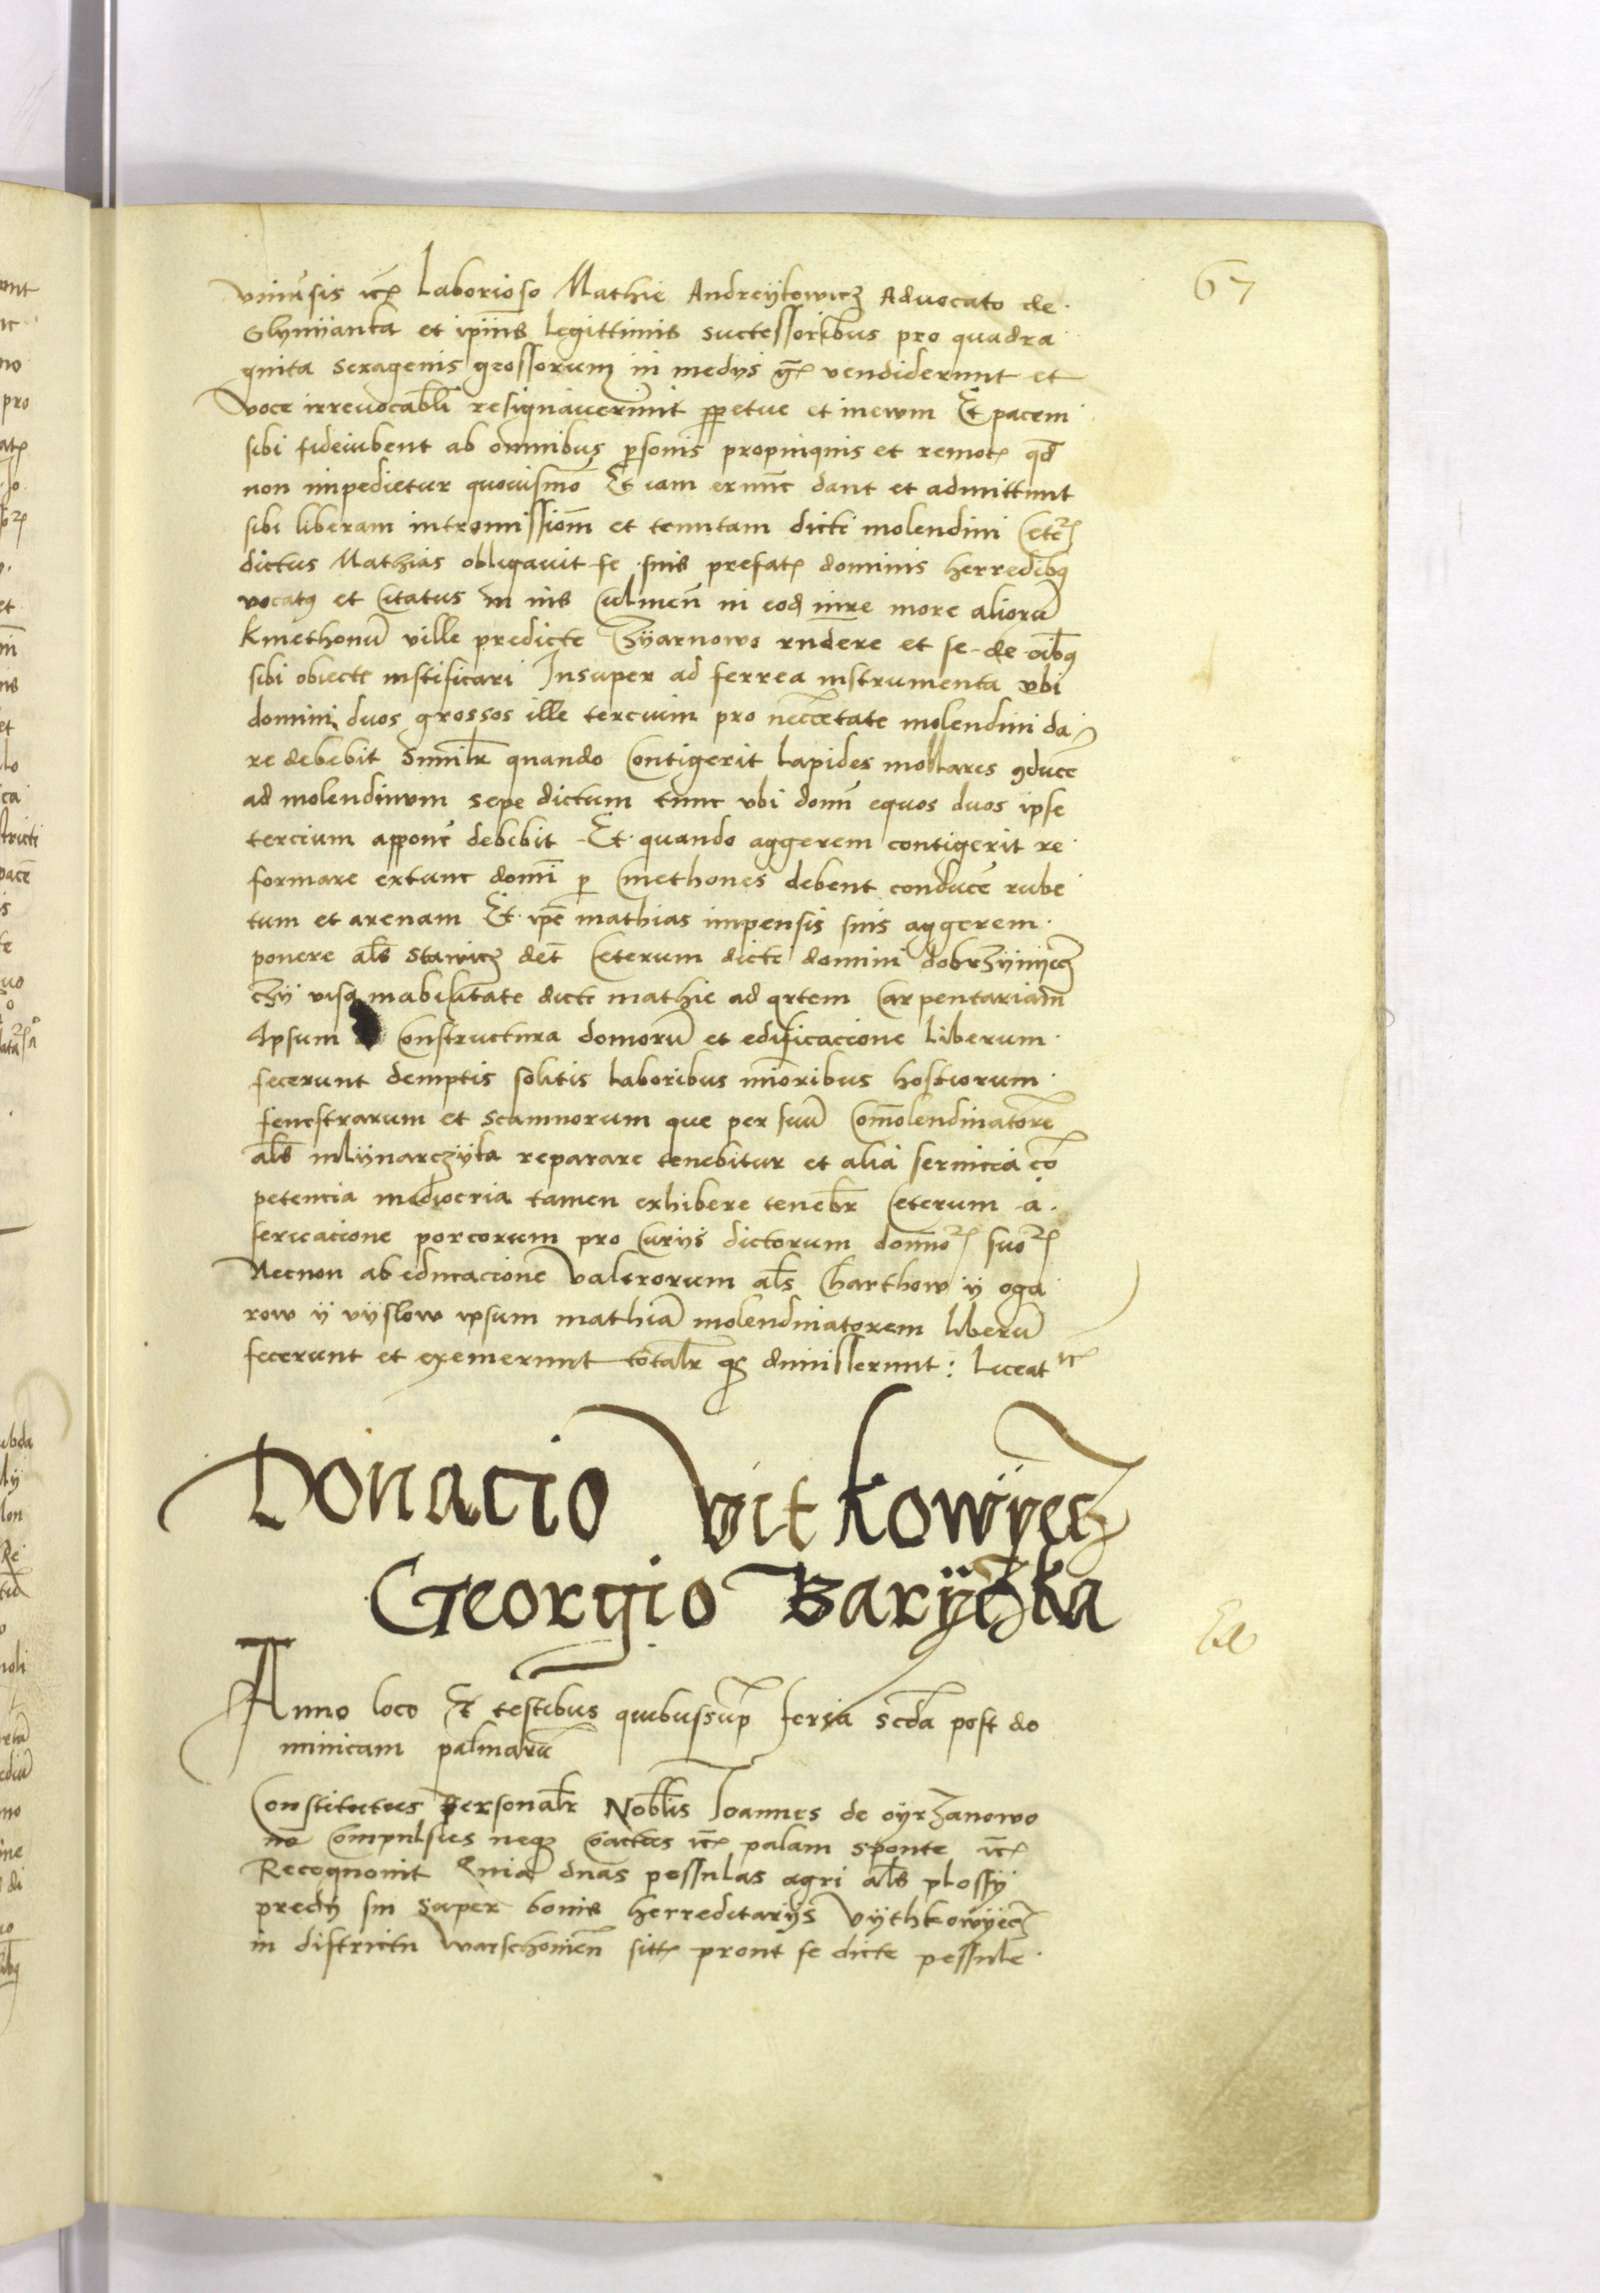 67
vniusis ꝛc̄ Laborioso Mathie Andreÿkowicz Advocato de
Glynÿanka et ipius legittimis successoribus pro quadra
ginta sexagenis grossorum in medijs gr̄ vendiderunt et
voce irreuocabl̄i resignauerunt ꝑpetue et in ewm Et pacem
sibi fideiubent ab omnibus ꝑsonis propinquis et remotꝭ qd̄
non impedietur quouismō Et iam exnūc dant et admittunt
sibi liberam intromissiōm et tenutam dicti molendini Cetꝝ
dictus Mathias obligauit se suis prefatꝭ dominis herredibꝫ
vocatꝫ et Citatus in ius Culmen̄ in eod iure more aliorū
kmethonū ville predicte Zÿarnowo rn̄dere et se de oībꝫ
sibi obiectꝭ iustificari Insuper ad ferrea instrumenta vbi
domini duos grossos ille tercium pro necc̄etate molendini da
re debebit Similr̄ quando Contigerit Lapides mollares ꝯducē
ad molendinum sepe dictum tunc vbi domī equos duos ipse
tercium apponē debebit Et quando aggerem contigerit re
formare extunc domī ꝑ Cmethones debent conducē rube
tum et arenam Et ipē mathias impensis suis aggerem
ponere al̄s stawicz det̄ Ceterum dicti domini dobrzÿnÿecz
czÿ visa inabilitate dicti mathie ad artem Carpentariam
Ipsum Constructura domorū et edificacione Liberum
fecerunt demptis solitis Laboribus mīoribus hostiorum
fenestrarum et scamnorum que per suū Comolendinatorē
al̄s mlÿnarczÿka reparare tenebitur et alia seruicia cō
petencia mediocria tamen exhibere tenebr̄ Ceterum a
seruacione porcorum pro Curijs dictorum domnoꝝ suoꝝ
Necnon ab educacione Valtrorum al̄s Charthow ÿ oga
row ÿ vÿslow ipsum mathiā molendinatorem liberū
fecerunt et exemerunt totalr̄ qꝫ dimisserunt: Liceat ꝛc̄
Donacio Vitkowÿecz
Georgio Barÿczka
Anno loco Et testibus quibussup̄ feria scd̄a post do
minicam palmarū
Constitutus personalr̄ Nobl̄is Joannes de oÿrzanowo
nō Compulsus neqꝫ Coactus ꝛc̄ palam sponte ꝛc̄
Recognouit Quia duas pessulas agri al̄s plossÿ
predij sui super bonis herreditarÿs Vÿthkowÿecz
in districtu Warschouien̄ sittꝭ prout se dicte pessule